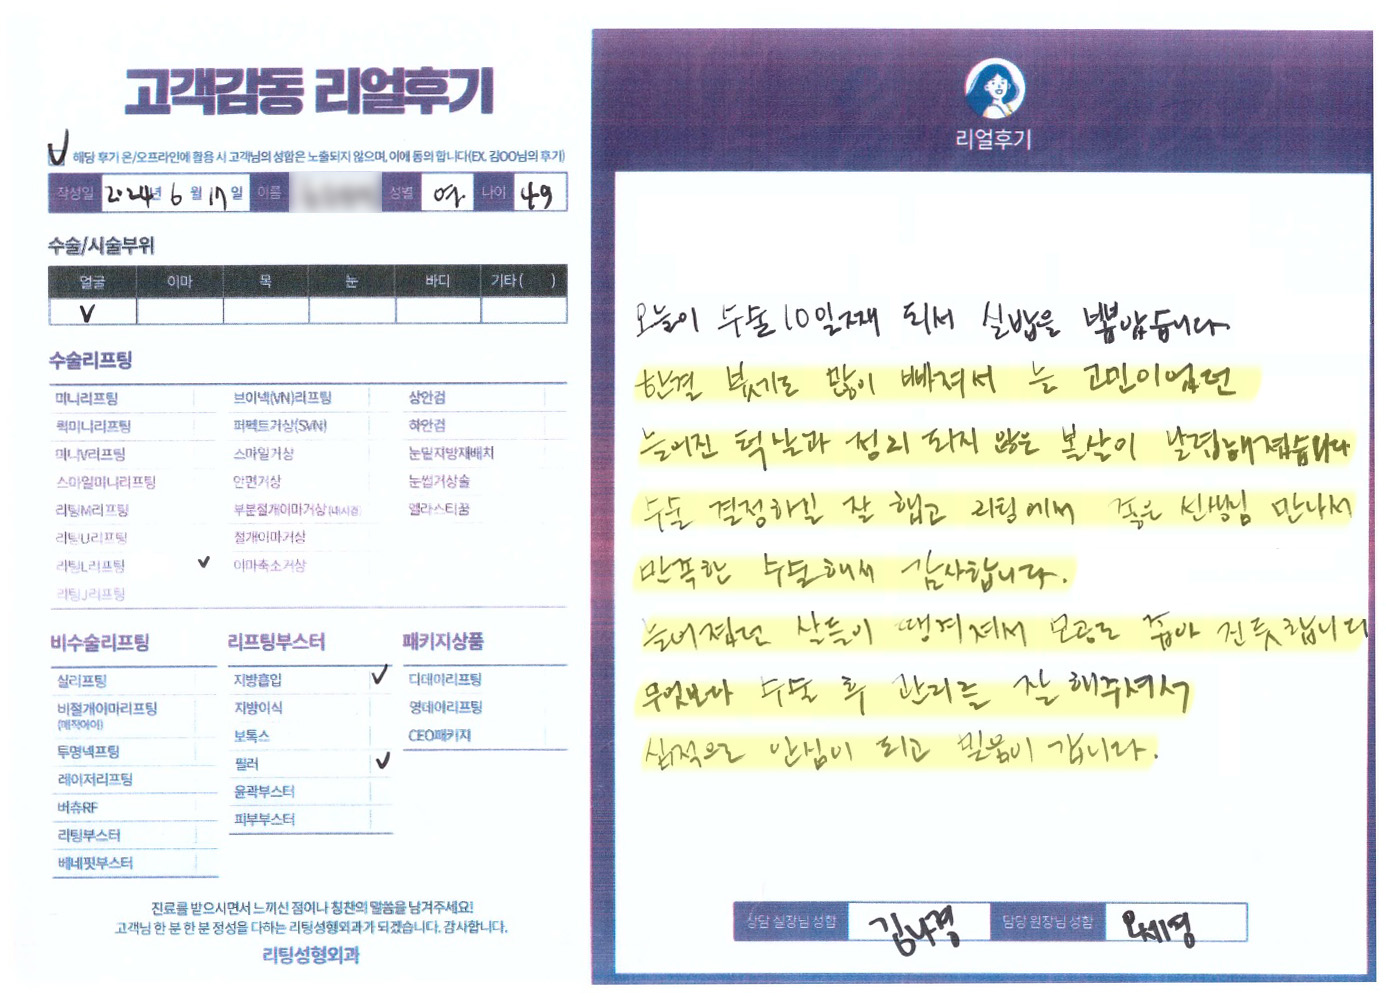 고객감동 리얼후기
해당 후기 온/오프라인에 활용 시 고객님의 성함은 노출되지 않으며, 이에 동의 합니다(EX. 김OO님의 후기)
작성일 2024년 6월 17일 이름 성별 여 나이 49
수술/시술부위
얼굴 이마 목 눈 바디 기타( )
V
수술리프팅
미니리프팅 브이넥(VN)리프팅 상안검
퀵미니리프팅 퍼펙트거상(SVN) 하안검
미니V리프팅 스마일거상 눈밑지방재배치
스마일미니리프팅 안면거상 눈썹거상술
리팅M리프팅 부분절개이마거상(내시경) 엘라스티꿈
리팅U리프팅 절개이마거상
리팅L리프팅 V 이마축소거상
리팅J리프팅
비수술리프팅 리프팅부스터 패키지상품
실리프팅 지방흡입 V 디데이리프팅
비절개이마리프팅 지방이식 영데이리프팅
(매직아이) 보톡스 CEO패키지
투명넥프팅 필러 V
레이저리프팅 윤곽부스터
버츄RF 피부부스터
리팅부스터
베네핏부스터
진료를 받으시면서 느끼신 점이나 칭찬의 말씀을 남겨주세요!
고객님 한 분 한 분 정성을 다하는 리팅성형외과가 되겠습니다. 감사합니다.
리팅성형외과
리얼후기
오늘이 수술 10일째 되서 실밥을 뽑았습니다.
한결 붓기도 많이 빠져서 늘 고민이었던
늘어진 턱살과 정리 되지 않은 볼살이 날렵해졌습니다
수술 결정하길 잘 했고 리팅에서 좋은 선생님 만나서
만족한 수술해서 감사합니다.
늘어졌던 살들이 땡겨져서 모공도 좁아 진듯합니다
무엇보다 수술 후 관리를 잘 해주셔서
심적으로 안심이 되고 믿음이 갑니다.
상담 실장님 성함 김나경 담당 원장님 성함 오세명